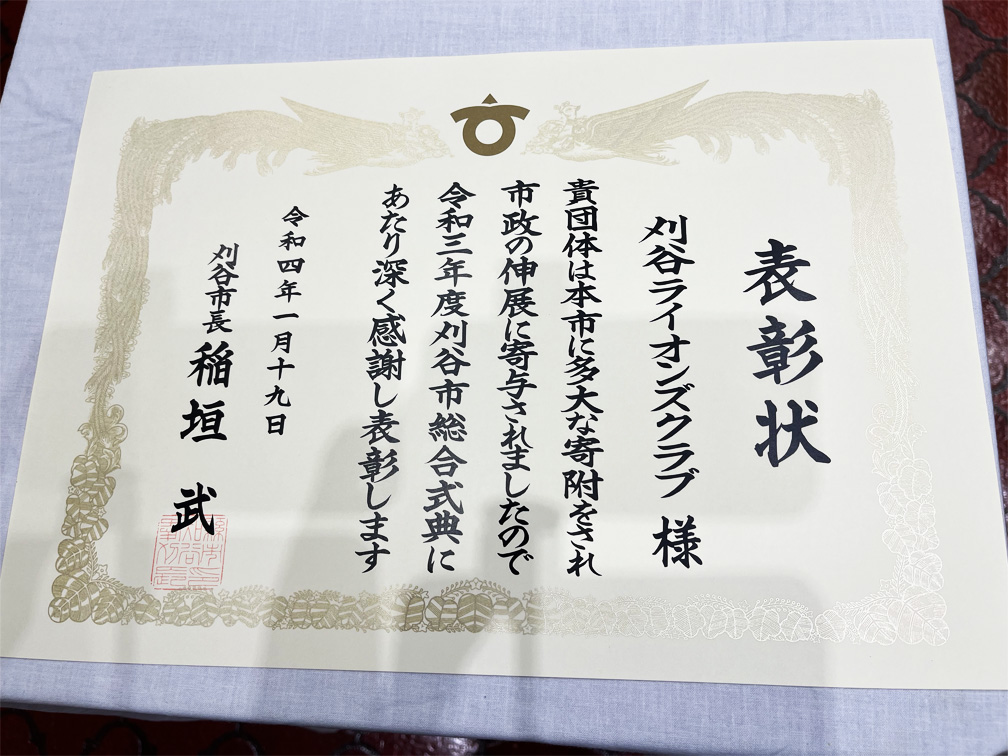 表彰状
刈谷ライオンズクラブ 様
貴団体は本市に多大な寄附をされ
市政の伸展に寄与されましたので
令和三年度刈谷市総合式典に
あたり深く感謝し表彰します
令和四年一月十九日
刈谷市長 稲垣 武